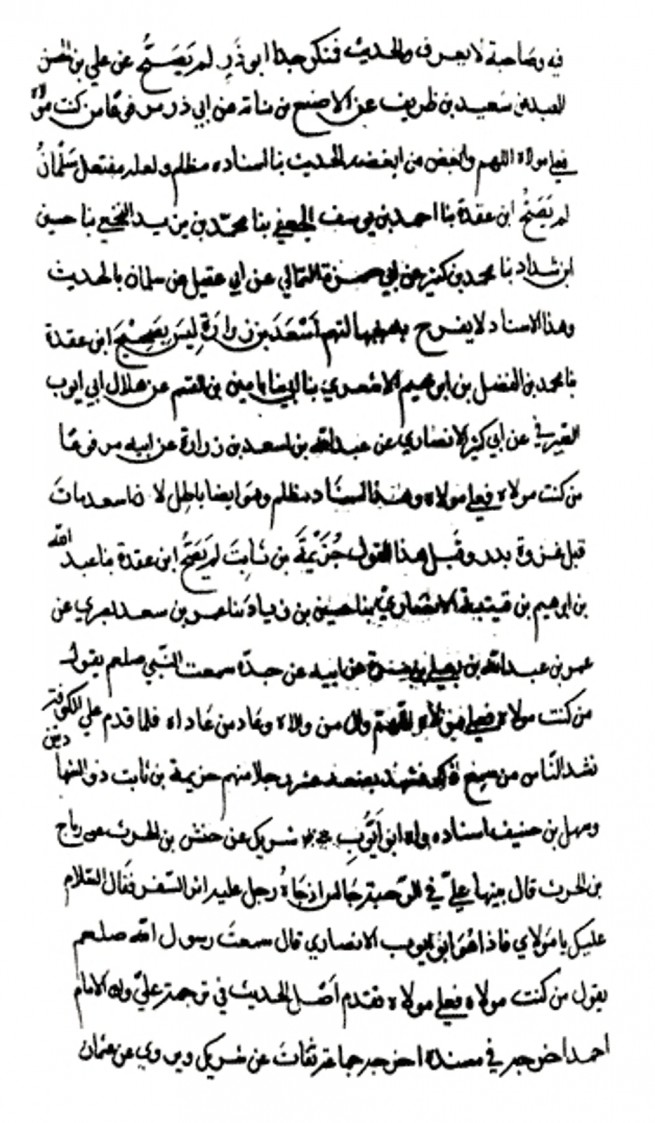 فيه وصاحبة لا يعرف والحديث فمنكر جدا ابو ذَر لم يَصَحّ عن علي بن الحسن
العبدي عن سعيد بن ظريف عن الاصبغ بن نباتة عن ابي ذر مرفوعا من كنت مولاه
فعلي مولاه اللهم وابغض من ابغضه الحديث بنا اسناده مظلم ولعله مفتعل سَلْمَانُ
لم يَصَحّ ابن عقدة بنا احمد بن يوسف الجعفي بنا محمد بن يزيد النخعي بنا حسين
ابن شداد بنا محمد بن كثير عن ابي حمزة الثمالي عن ابي عقيل عن سلمان بالحديث
وهذا الاسناد لا يفرح به اَسْعَدَ بن زرارة لَيسَ بصَحِيْحٍ ابن عقدة
بنا محمد بن الفضل بن ابرهيم الاشعري بنا ابي بنا بن القسم عن هلال ابي ايوب
الصيرفي عن ابي كثير الانصاري عن عبد الله بن اسعد بن زرارة عن ابيه مرفوعا
من كنت مولاه فعلي مولاه وهذا السناد مظلم وهو ايضا باطل لان اسعد مات
قبل غزوة بدر وقبل هذا القول خُزَيْمَة بن ثابت لم يَصَحّ ابن عقدة بنا عبد الله
بن ابرهيم بن قتيبة الانصاري بنا حسين بن زياد بنا عمر بن سعد البصري عن
عمر بن عبد الله بن يعلى بن مرة عن ابيه عن جده سمعت النبي صلعم يقول
من كنت مولاه فعلي مولاه اللهم وال من والاه وعاد من عاداه فلما قدم علي الكوفة
نشد الناس من سمع ذلك فشهد بضعة عشر رجلا منهم خزيمة بن ثابت ذو الشهادتين
وسهل بن حنيف اسناده واه ابو ايّوب شريك عن حنش بن الحرث عن رياح
بن الحرث قال بينما عليّ في الرحبة جالس اذ جاءَ رجل عليه اثر السفر فقال السلام
عليك يا مولاي فاذا هو ابو ايوب الانصاري قال سمعت رسول الله صلعم
يقول من كنت مولاه فعلي مولاه فقدم اصل الحديث في ترجمة عليّ وان الامام
احمد اخرجه في مسنده اخرجه جماعة ثقات عن شريك ويروي عن عثمان